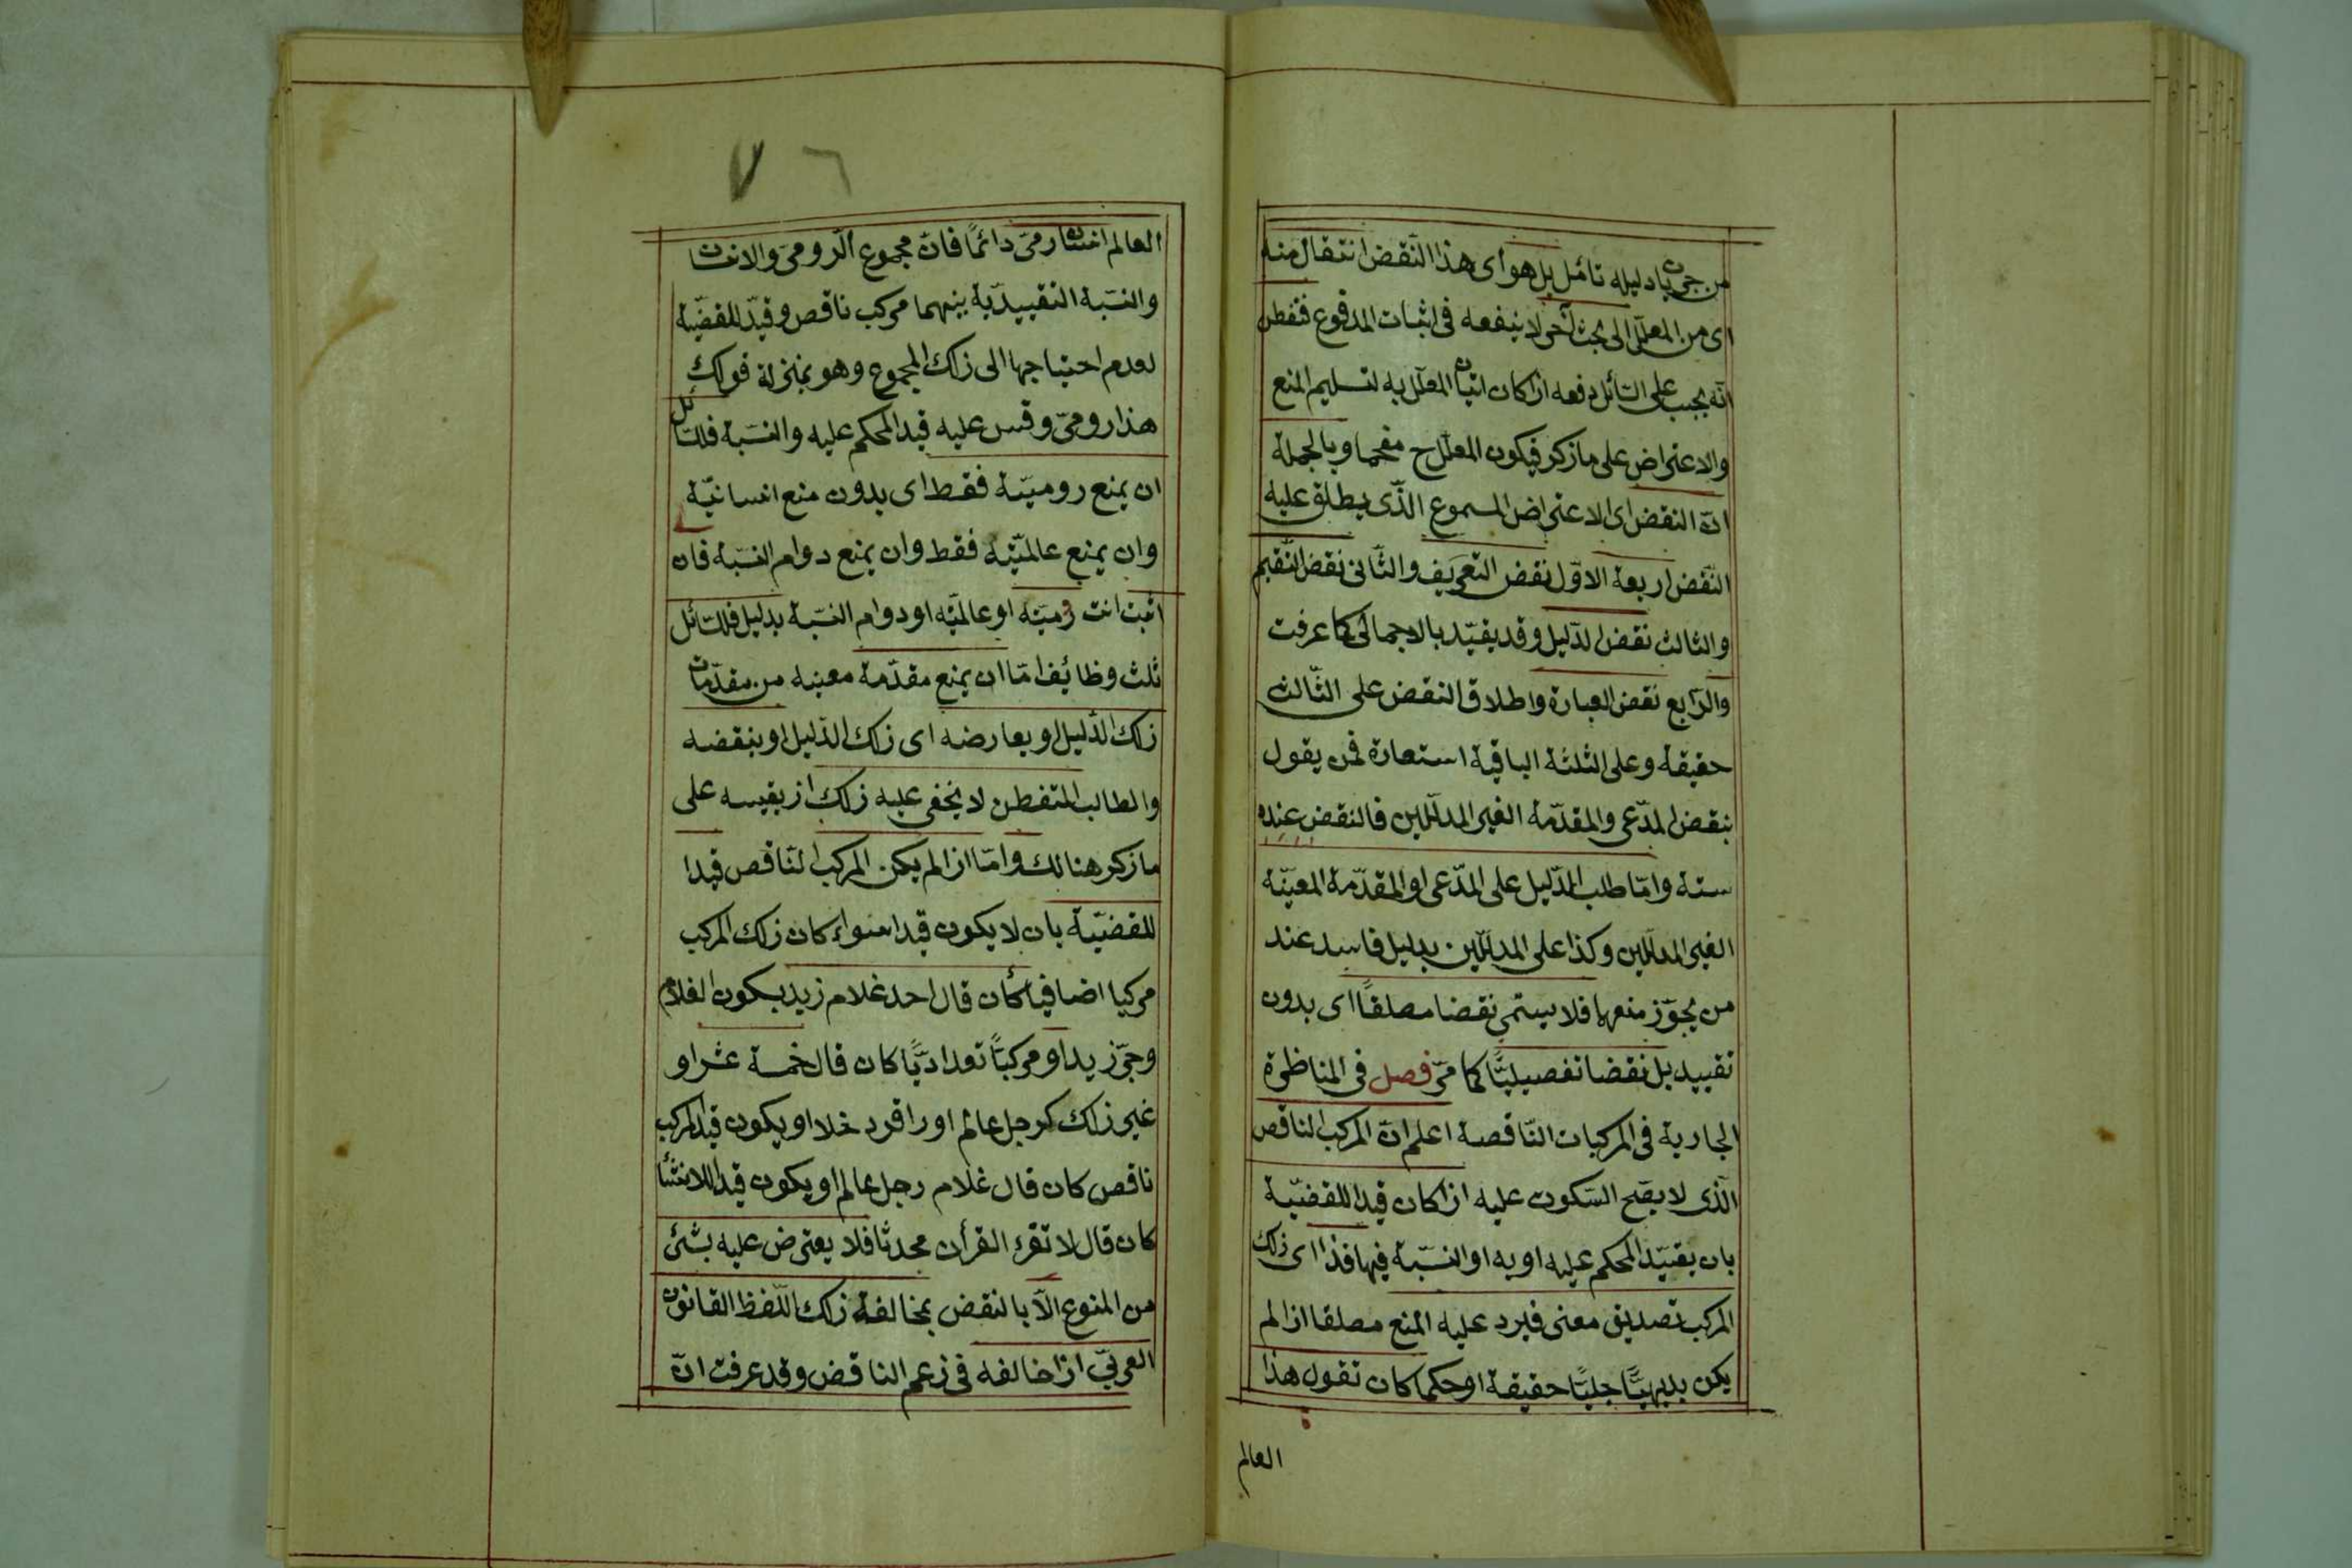 من جريان دليله تأمل بل هو أى هذا النّقض انتقال منه
اى من المعلّل الى بحث آخر لا ينفعه فى اثبات المدفوع فتفطن
انّه يجب على السّائل دفعه اذا كان اتيان المعلّل به لتسليم المنع
والاعتراض على ما ذكر فيكون المعلّل ح مفحما وبالجملة
انّ النقض اى الاعتراض المسموع الذّى يطلق عليه
النّقض اربعة الاوّل نقض التعريف والثّانى نقض التّقسيم
والثالث نقض الدّليل وقد يقيّد بالاجمالىّ كما عرفت
والرّابع نقض العبارة واطلاق النقض على الثّالث
حقيقة وعلى الثلثة الباقية استعارة فمن يقول
بنقض المدّعى والمقدّمة الغير المدلّلين فالنقض عنده
ستة وامّا طلب الدّليل على المدّعى او المقدّمة المعيّنة
الغير المدلّلين وكذا على المدلّلين بدليل فاسد عند
من يجوّز منعها فلا يسمّى نقضا مطلقًا اى بدون
تقييد بل نقضا تفصيليًّا كما مرّ فصل فى المناظرة
الجارية فى المركبات النّاقصة اعلم انّ المركب الناقص
الّذى لا يصحّ السّكون عليه اذا كان قيدا للقضيّة
بان يقيّد المحكم عليه او به او النسّبة فيها فذا اى ذلك
المركب تصديق معنى فيرد عليه المنع مطلقا اذا لم
يكن بديهيًّا جليًّا حقيقة او حكما كان تقول هذا
العالم
٧٦
العالم انسان رومىّ دائمًا فانّ مجموع الرّومىّ والانسان
والنسّبة التقييديّة بينهما مركب ناقص وقيد للقضيّة
لعدم احتياجها الى ذلك المجموع وهو بمنزلة قولك
هذا رومىّ وقس عليه قيد المحكم عليه والنسّبة فللسّائل
ان يمنع روميّته فقط اى بدون منع انسانيّة
وان يمنع عالميّته فقط وان يمنع دوام النسّبة فان
اثبت انت روميّته او عالميّته او دوام النسّبة بدليل فللسّائل
ثلث وظائف امّا ان يمنع مقدّمة معينه من مقدّمات
ذلك الدّليل او يعارضه اى ذلك الدّليل او ينقضه
والطالب المتفطن لا يخفى عليه ذلك اذ يقيسه على
ما ذكر هنالك وامّا اذا لم يكن المركب النّاقص قيدا
للقضيّة بان لا يكون قيدا سواء كان ذلك المركب
مركبا اضافيا كأن قال احد غلام زيد بسكون الغلام
وجرّ زيد او مركبًا تعداديًّا كان قال خمسة عشر او
غير ذلك كرجل عالم او را قود خلا او يكون قيد المركب
ناقص كان قال غلام رجل عالم او يكون قيدا للانشأ
كان قال لا تقرء القرأن محدثا فلا يعترض عليه بشئ
من المنوع الّا بالنقض بمخالفة ذلك اللّفظ القانون
العربىّ اذا خالفه فى زعم الناقض وقد عرفت انّ